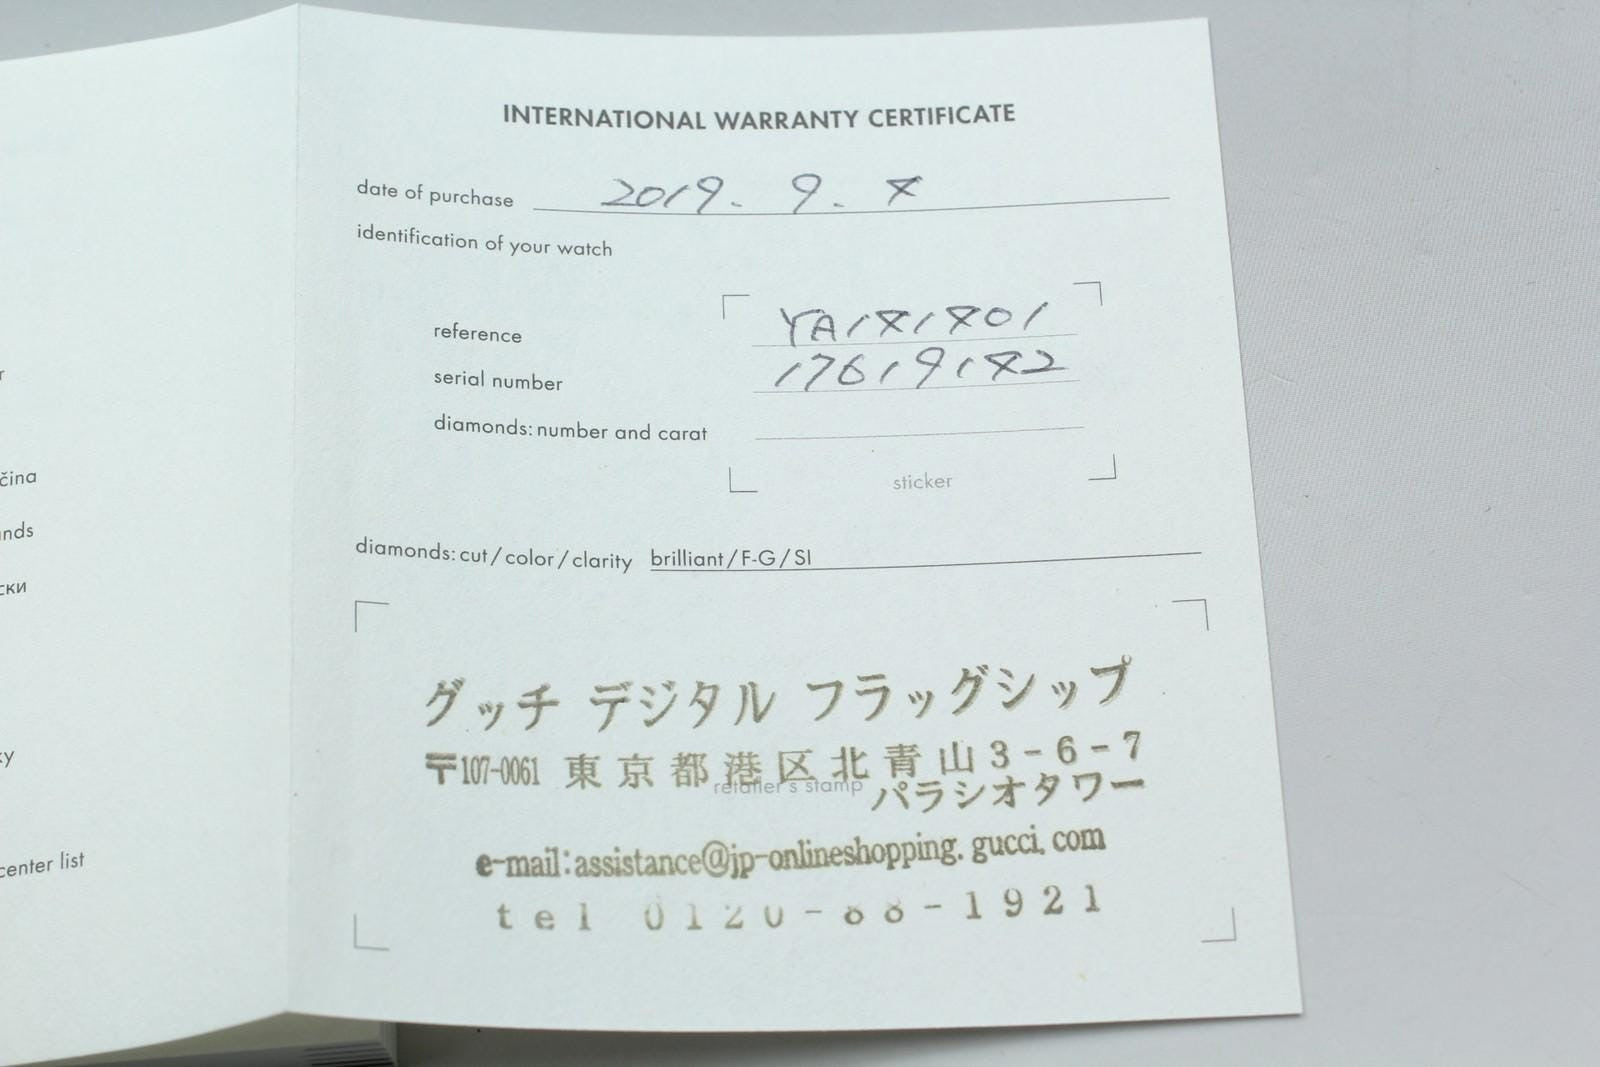 čina
ands
ски
center list
INTERNATIONAL WARRANTY CERTIFICATE
date of purchase 2019. 9. 4
identification of your watch
reference YA141401
serial number 17619142
diamonds: number and carat
sticker
diamonds: cut / color / clarity brilliant / F-G / SI
グッチ デジタル フラッグシップ
〒107-0061 東京都港区北青山3-6-7
retailer's stamp パラシオタワー
e-mail:assistance@jp-onlineshopping.gucci.com
tel 0120-88-1921